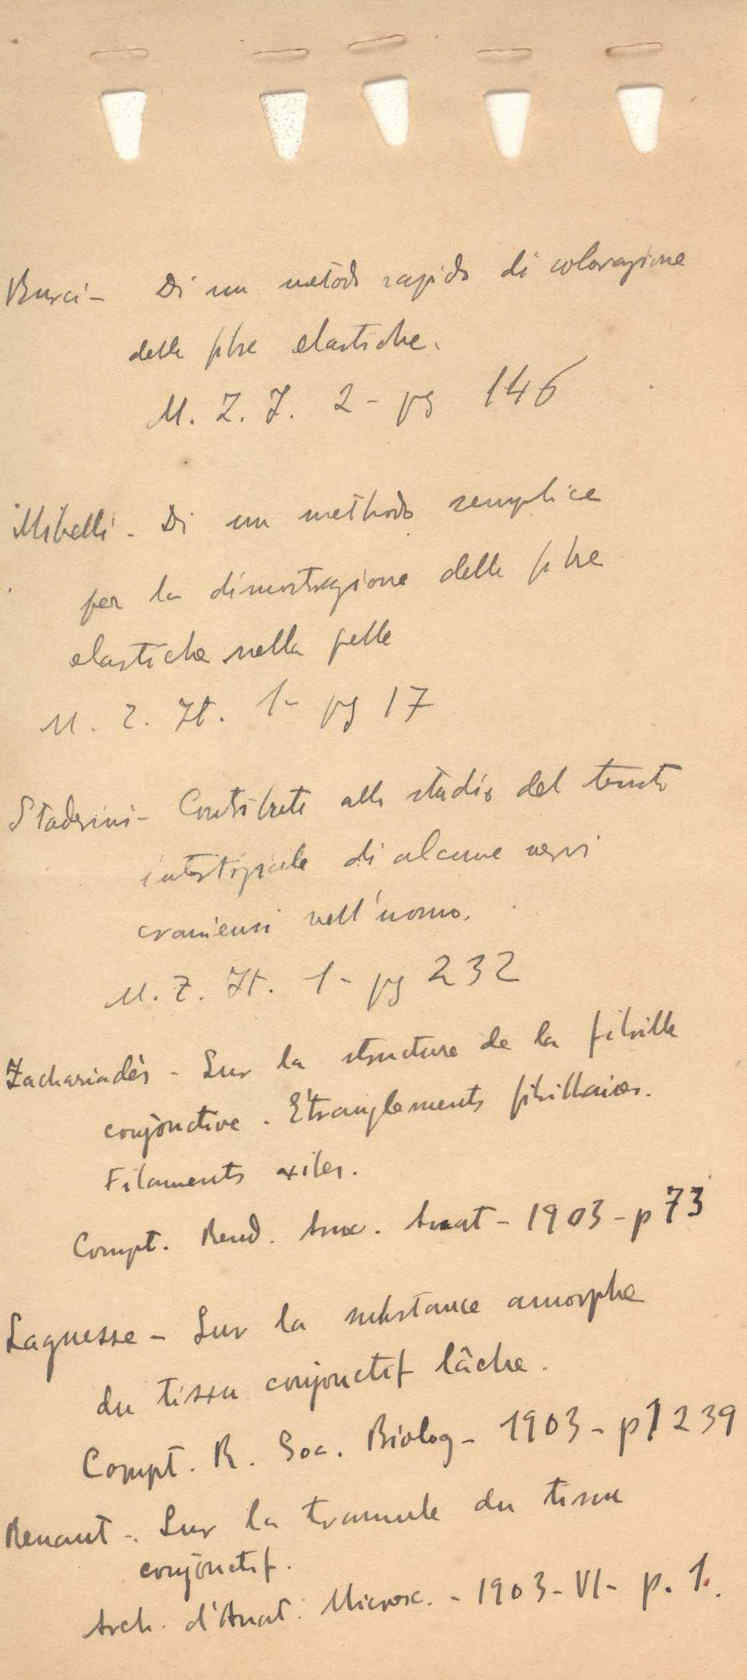 Burci - Di un metodo rapido di colorazione
delle fibre elastiche.
M. Z. I. 2 - pg 146
Mibelli - Di un methodo semplice
per la dimostrazione delle fibre
elastiche nella pelle
M. Z. It. 1 - pg 17
Staderini - Contributi allo studio del tessuto
interstiziale di alcune nervi
craniensi nell'uomo.
M. Z. It. 1 - pg 232
Zachariadès - Sur la structure de la fibrille
conjonctive. Etranglements fibrillaires.
Filaments axiles.
Compt. Rend. Ass. Anat - 1903 - p 73
Laguesse - Sur la substance amorphe
du tissu conjonctif lâche.
Compt. R. Soc. Biolog - 1903 - p 1239
Renaut - Sur la tramule du tissu
conjonctif.
Arch. d'Anat. Microsc. - 1903 - VI - p. 1.